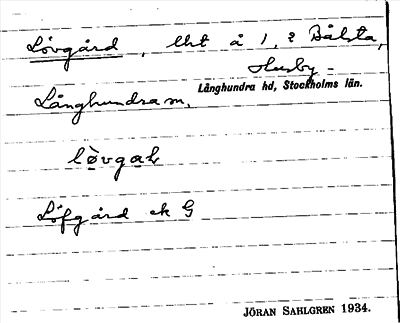 Lövgård, lht å 1, 2 Bålsta,
Husby-
Långhundra m.
Långhundra hd, Stockholms län.
lövgaḷ
Löfgård ek G
JÖRAN SAHLGREN 1934.